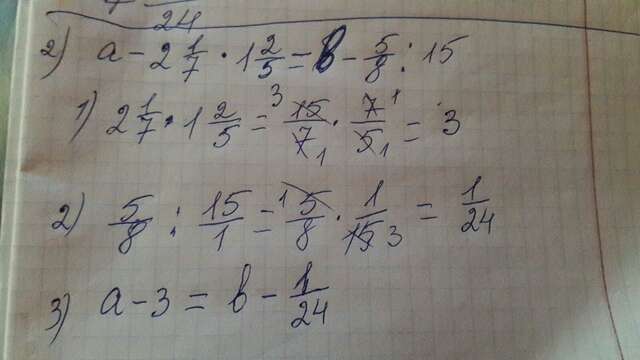 24
2) a - 2 1/7 · 1 2/5 = b - 5/8 : 15
1) 2 1/7 · 1 2/5 = 3 15/7 1 · 7/5 1 1 = 3
2) 5/8 : 15/1 = 1 5/8 · 1/15 3 = 1/24
3) a - 3 = b - 1/24